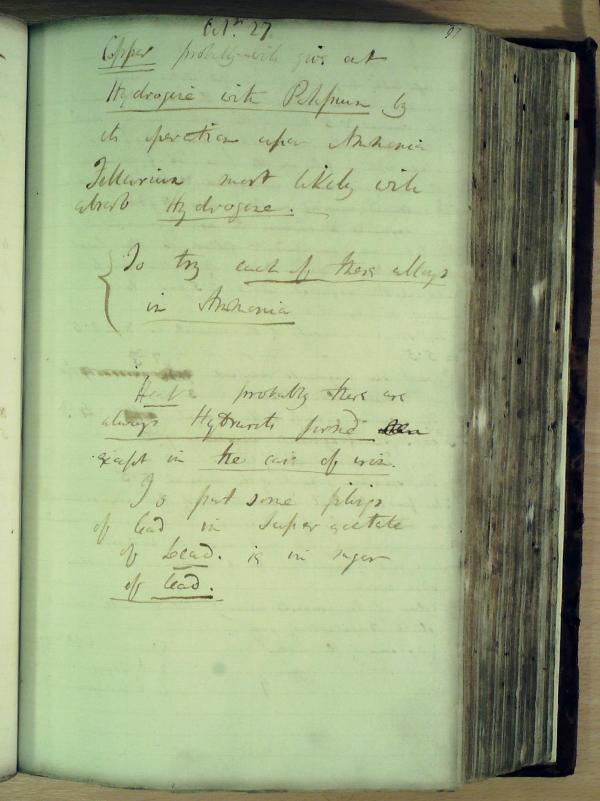 Octr. 27.
97
Copper probably will give out
Hydrogene with Potassium by
its operation upon Ammonia
Tellurium most likely will
absorb Hydrogene.
To try each of these alloys
in Ammonia
Heat probably there are
always Hydrurets formed
except in the case of iron.
To put some filings
of lead in super acetate
of Lead. ie in sugar
of lead.